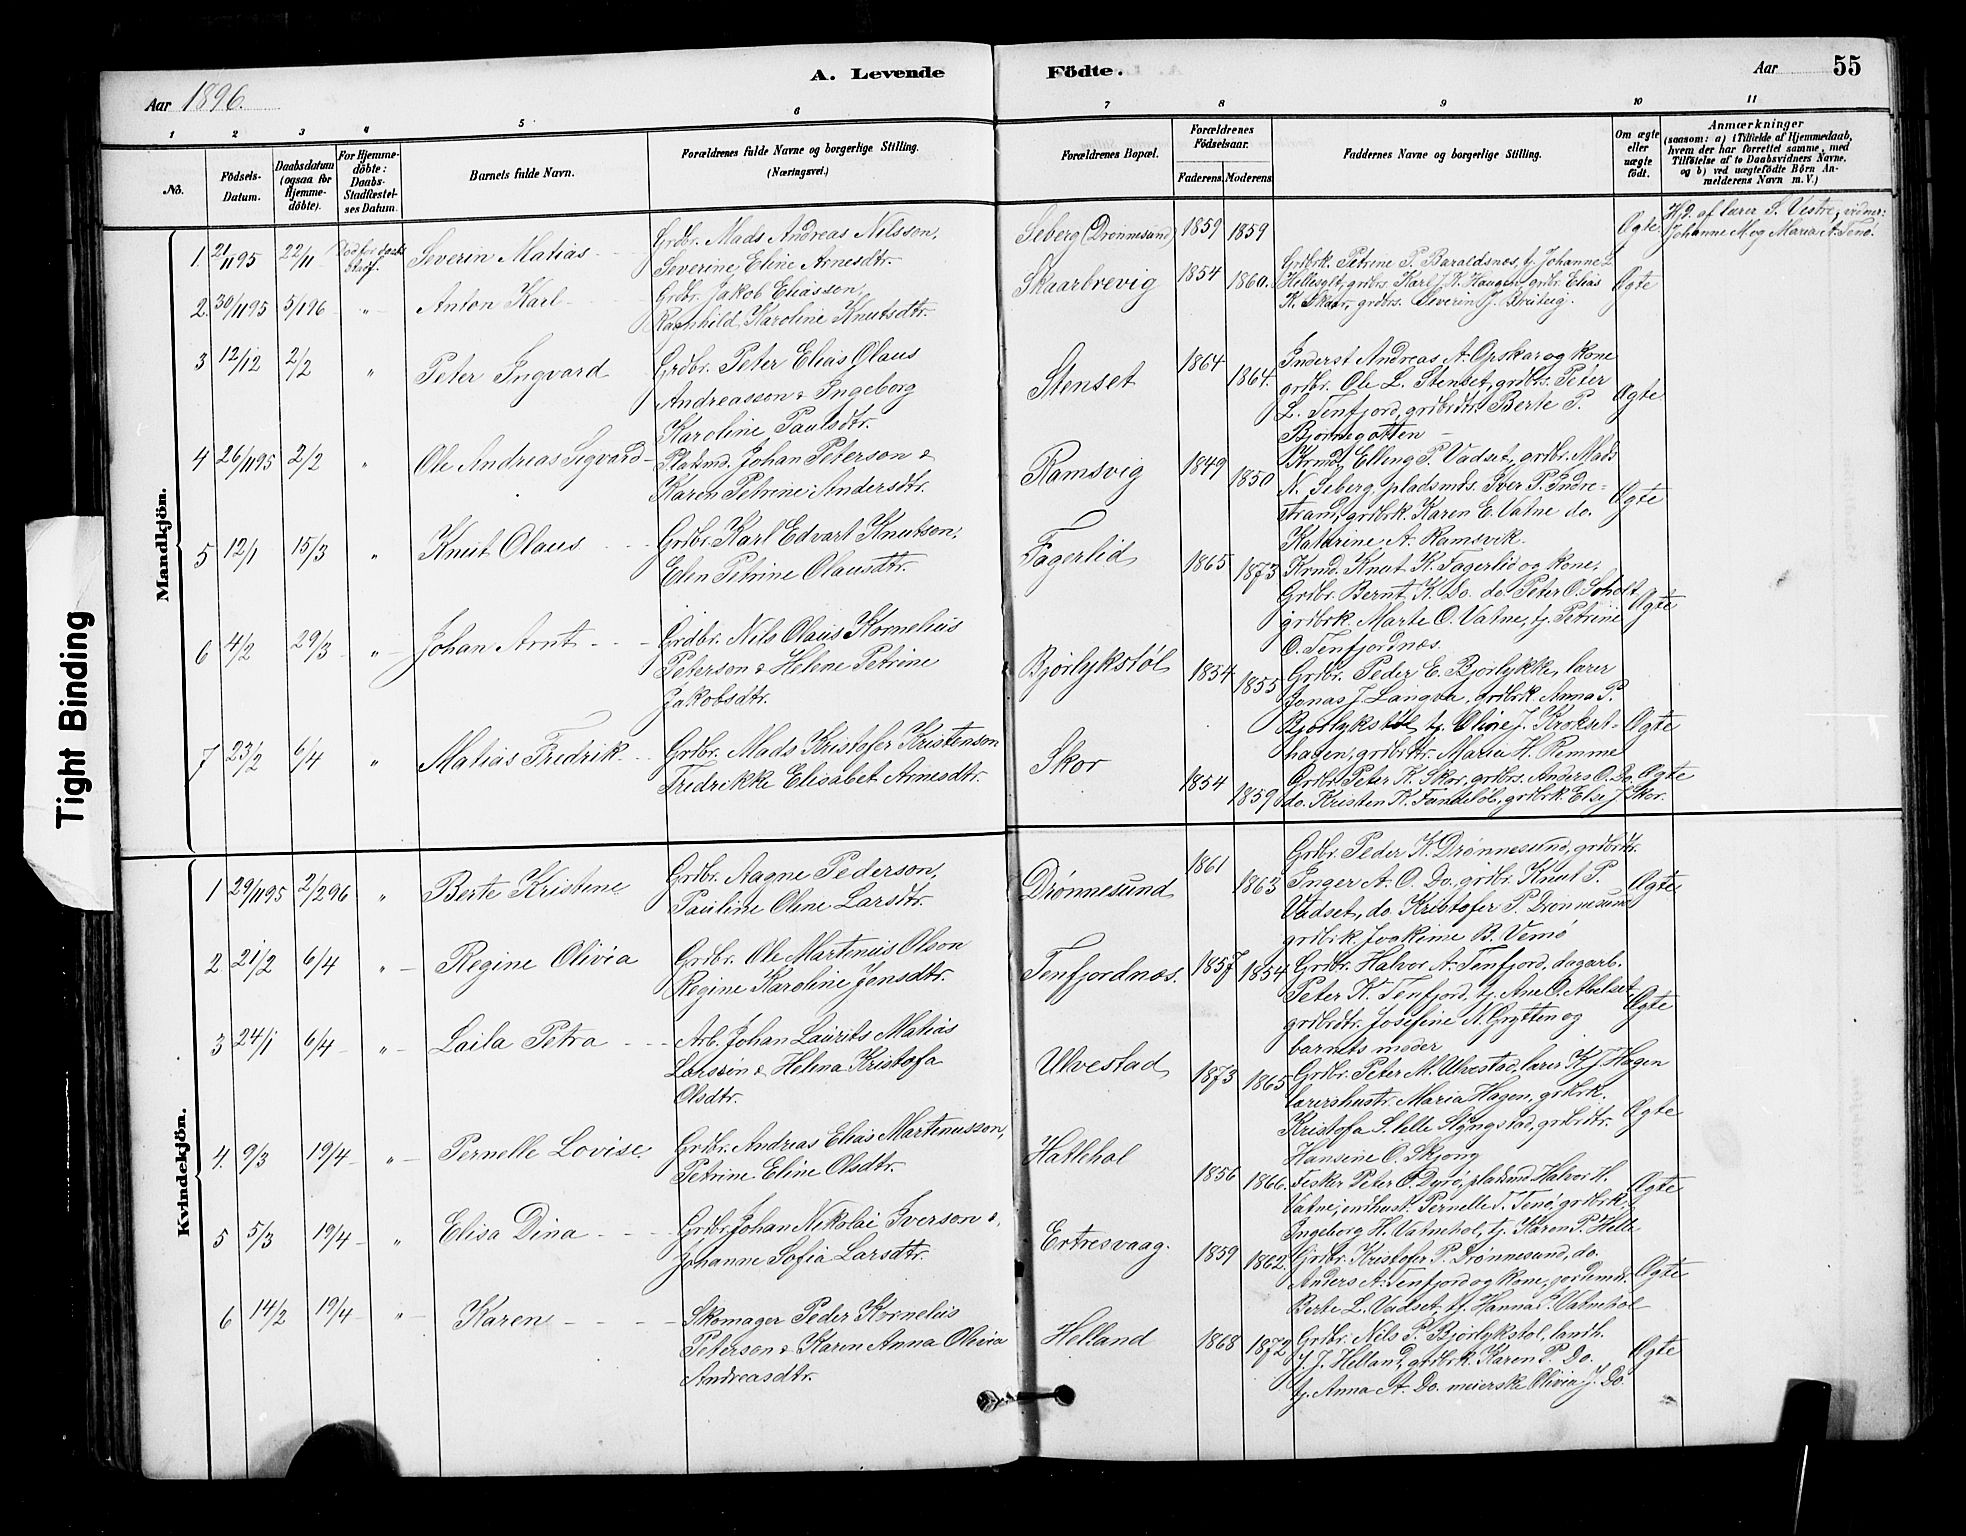 A. Levende Födte.
Aar 1896.
Aar 55
1 2 3 4 5 6 7 8 9 10 11
No.
Födsels-Datum.
Daabsdatum (ogsaa for Hjemme-döbte).
For Hjemme-döbte: Daabs-Stadfæstel-ses Datum.
Barnets fulde Navn.
Forældrenes fulde Navne og borgerlige Stilling.
(Næringsvei.)
Forældrenes Bopæl.
Forældrenes Födselsaar.
Faderens. Moderens.
Faddernes Navne og borgerlige Stilling.
Om ægte eller uægte födt.
Anmærkninger
(saasom: a) i Tilfælde af Hjemmedaab, hvem der har forrettet samme, med Tilföielse af to Daabsvidners Navne, og b) ved uægtefödte Börn Anmelderens Navn m. V.)
Tight Binding
Mandkjön.
1. 21/11 95 22/11 Död för daabs stadf. Severin Matias
Grdbr. Mads Andreas Nilsson,
Severine Eline Arnesdtr.
Seberg (Drønnesund) 1859 1859
Ægte
H.d. af lærer S. Vestre, vidner:
Johanne M. og Maria A. Tenø.
2. 30/11 95 5/1 96 " Anton Karl
Grdbr. Jakob Eliasson,
Ragnhild Karoline Knutsdtr.
Skaarbrevig 1854 1860.
Grdbrk. Petrine P. Baraldsnes, tj. Johanne L.
Hellesylt, grdbrs. Karl J. K. Haugen, grdbr. Elias
K. Skaar, grdbrs. Severin J. Breiberg.
Ægte
3 12/12 2/2 " Peter Ingvard
Grdbr. Peter Elias Olaus
Andreasson & Ingeborg
Karoline Paulsdtr.
Stenset 1864 1864.
Inderst Andreas A. Opskar og kone
grdbr. Ole L. Stenset, grdbrs. Peter
L. Tenfjord, grdbrdtr. Berte P.
Bjørnegotten
Ægte
4 26/11 95 2/2 " Ole Andreas Sigvard
Pladsmd. Johan Peterson &
Karen Petrine Andersdtr.
Ramsvig 1849 1850
Krmd. Elling P. Vadset, grdbr. Mads
N. Seberg, pladsmds. Iver P. Indre-
strand, grdbrk. Karen E. Vatne do.
Katrine A. Ramsvik.
Ægte
5 12/1 15/3 " Knut Olaus
Grdbr. Karl Edvart Knutson,
Elen Petrine Olausdtr.
Fagerlid 1865 1873
Krmd. Knut K. Fagerlid og kone,
Grdbr. Bernt K. Do. do. Peter O. Soholt
grdbrk. Marte O. Vatne, tj. Petrine
O. Tenfjordnæs.
Ægte
6 4/2 29/3 " Johan Arnt
Grdbr. Nils Olaus Kornelius
Peterson & Helene Petrine
Jakobsdtr.
Bjørlykstøl 1854 1855
Grdbr. Peder E. Bjorlykke, lærer
Jonas J. Langva, grdbrk. Anna P.
Bjorlykstøl tj. Oline J. Krokset-
hagen, grdbrdtr. Maria H. Remme
Ægte
7 23/2 6/4 " Matias Fredrik
Grdbr. Mads Kristofer Kristenson
Fredrikke Elisabet Arnesdtr.
Skor 1854 1859
Grdbr. Peter K. Skor, grdbrs. Anders O. Do.
do. Kristen K. Fandeløb, grdbrk. Else J. Skor.
Ægte
Kvindekjön.
1 29/11 95 2/2 96 " Berte Kristine
Grdbr. Aagne Pederson,
Pauline Oline Larsdtr.
Drønnesund 1861 1863
Grdbr. Peder K. Drønnesund, grdbrdtr.
Inger A. O. Do. grdbr. Knut P.
Vadset, do. Kristofer P. Drønnesund
grdbrk. Joakime B. Vemø
Ægte
2 21/2 6/4 " Regine Olivia
Grdbr. Ole Martenus Olson
Regine Karoline Jensdtr.
Tenfjordnæs. 1857 1854
Grdbr. Halvor A. Tenfjord, dagarb.
Peter K. Tenfjord, tj. Ane O. Abelset
grdbrdtr. Josefine N. Grytten og
barnets moder
Ægte
3 24/1 6/4 " Laila Petra
Arb. Johan Laurits Matias
Larsen & Helena Kristofa
Olsdtr.
Ulvestad 1873 1865
Grdbr. Peter M. Ulvestad, lærer K. J. Hagen
lærershustr. Maria Hagen, grdbrk.
Kristofa S. lille Slyngstad, grdbrdtr.
Hansine O. Skjong
Ægte
4. 9/3 19/4 " Pernelle Lovise.
Grdbr. Andreas Elias Martinusson,
Petrine Eline Olsdtr.
Hatlehol 1856 1866.
Fisker Peter O. Dyrø, pladsmd. Halvor H.
Vatne, indhust. Pernelle T. Tenø, grdbrk.
Ingeborg H. Vatnehol, tj. Karen P. Helle
Ægte
5 5/3 19/4 " Elisa Dina
Grdbr. Johan Nikolai Iverson &
Johanne Sofia Larsdtr.
Ertresvaag. 1859 1862.
Grdbr. Kristofer P. Drønnesund, do.
Anders A. Tenfjord og kone, jordemdr.
Berte L. Vadset, tj. Hanna P. Vatnehol
Ægte
6 14/2 19/4 " Karen
Skomager Peder Kornelius
Peterson & Karen Anna Olivia
Andreasdtr.
Helland 1868 1872
Grdbr. Nils P. Bjørlykstøl, landh.
J. J. Helland, grdbrk. Karen P. Do.
tj. Anna A. Do. meierske Olivia J. Do.
Ægte